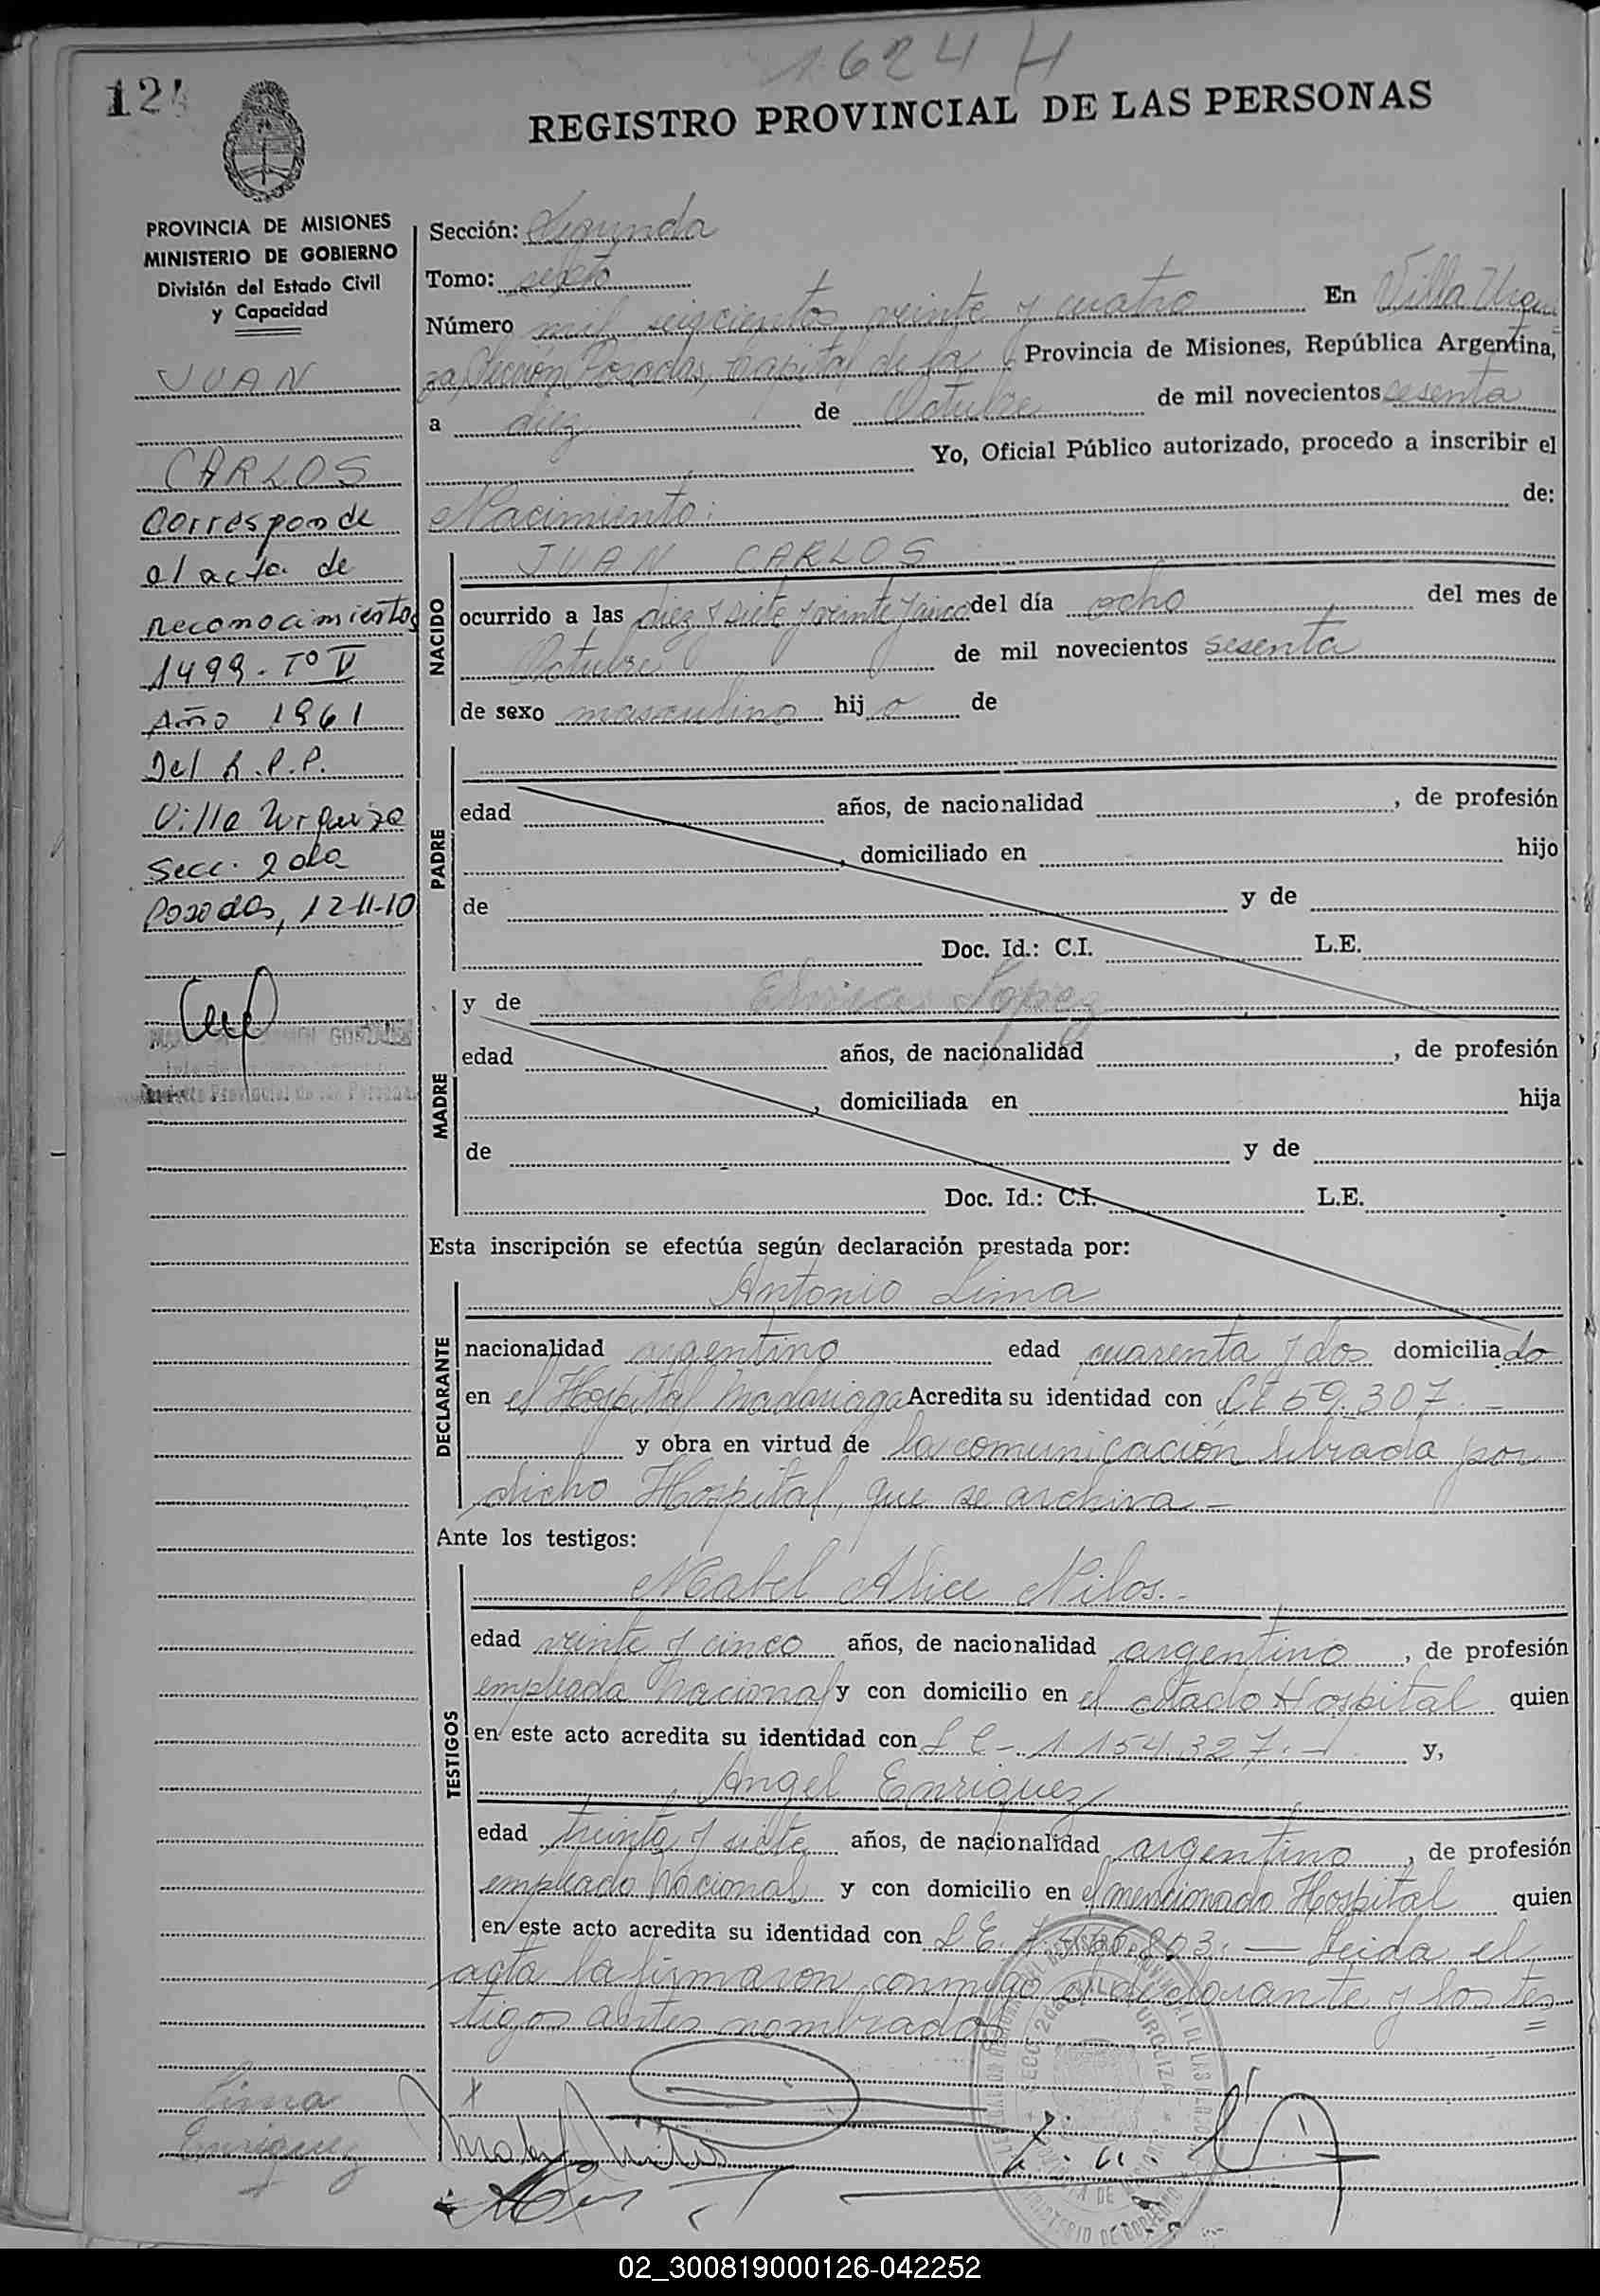 1624 H
124
REGISTRO PROVINCIAL DE LAS PERSONAS
PROVINCIA DE MISIONES
MINISTERIO DE GOBIERNO
División del Estado Civil
y Capacidad
JUAN
CARLOS
Corresponde
al acta de
reconocimientos
1499 - Tº V
Año 1961
Del R.P.P.
Villa Urquiza
Secc. 2da
Posadas, 12-11-10
Lima
Enriquez
Sección: Segunda
Tomo: sexto
Número mil seiscientos veinte y cuatro En Villa Urqui
za, Sección Posadas, Capital de la Provincia de Misiones, República Argentina,
a diez de Octubre de mil novecientos sesenta
Yo, Oficial Público autorizado, procedo a inscribir el
Nacimiento: de:
NACIDO
JUAN CARLOS
ocurrido a las diez y siete y veinte y cinco del día ocho del mes de
Octubre de mil novecientos sesenta
de sexo masculino hijo de
PADRE
edad años, de nacionalidad , de profesión
, domiciliado en hijo
de y de
Doc. Id.: C.I. L.E.
MADRE
y de Lopez
edad años, de nacionalidad , de profesión
, domiciliada en hija
de y de
Doc. Id.: C.I. L.E.
Esta inscripción se efectúa según declaración prestada por:
DECLARANTE
Antonio Lima
nacionalidad argentino edad cuarenta y dos domiciliado
en el Hospital Madariaga Acredita su identidad con CI 59.307.-
y obra en virtud de la comunicación librada por
dicho Hospital, que se archiva -
Ante los testigos:
TESTIGOS
Mabel Alice Nilos.-
edad veinte y cinco años, de nacionalidad argentino, de profesión
empleada Nacional y con domicilio en el citado Hospital quien
en este acto acredita su identidad con L C - 1.154.327.- y,
Angel Enriquez
edad treinta y siete años, de nacionalidad argentino, de profesión
empleado Nacional y con domicilio en el mencionado Hospital quien
en este acto acredita su identidad con L.E. — Leida el
acta la firmaron conmigo el declarante y los tes
tigos antes nombrados
02_300819000126-042252